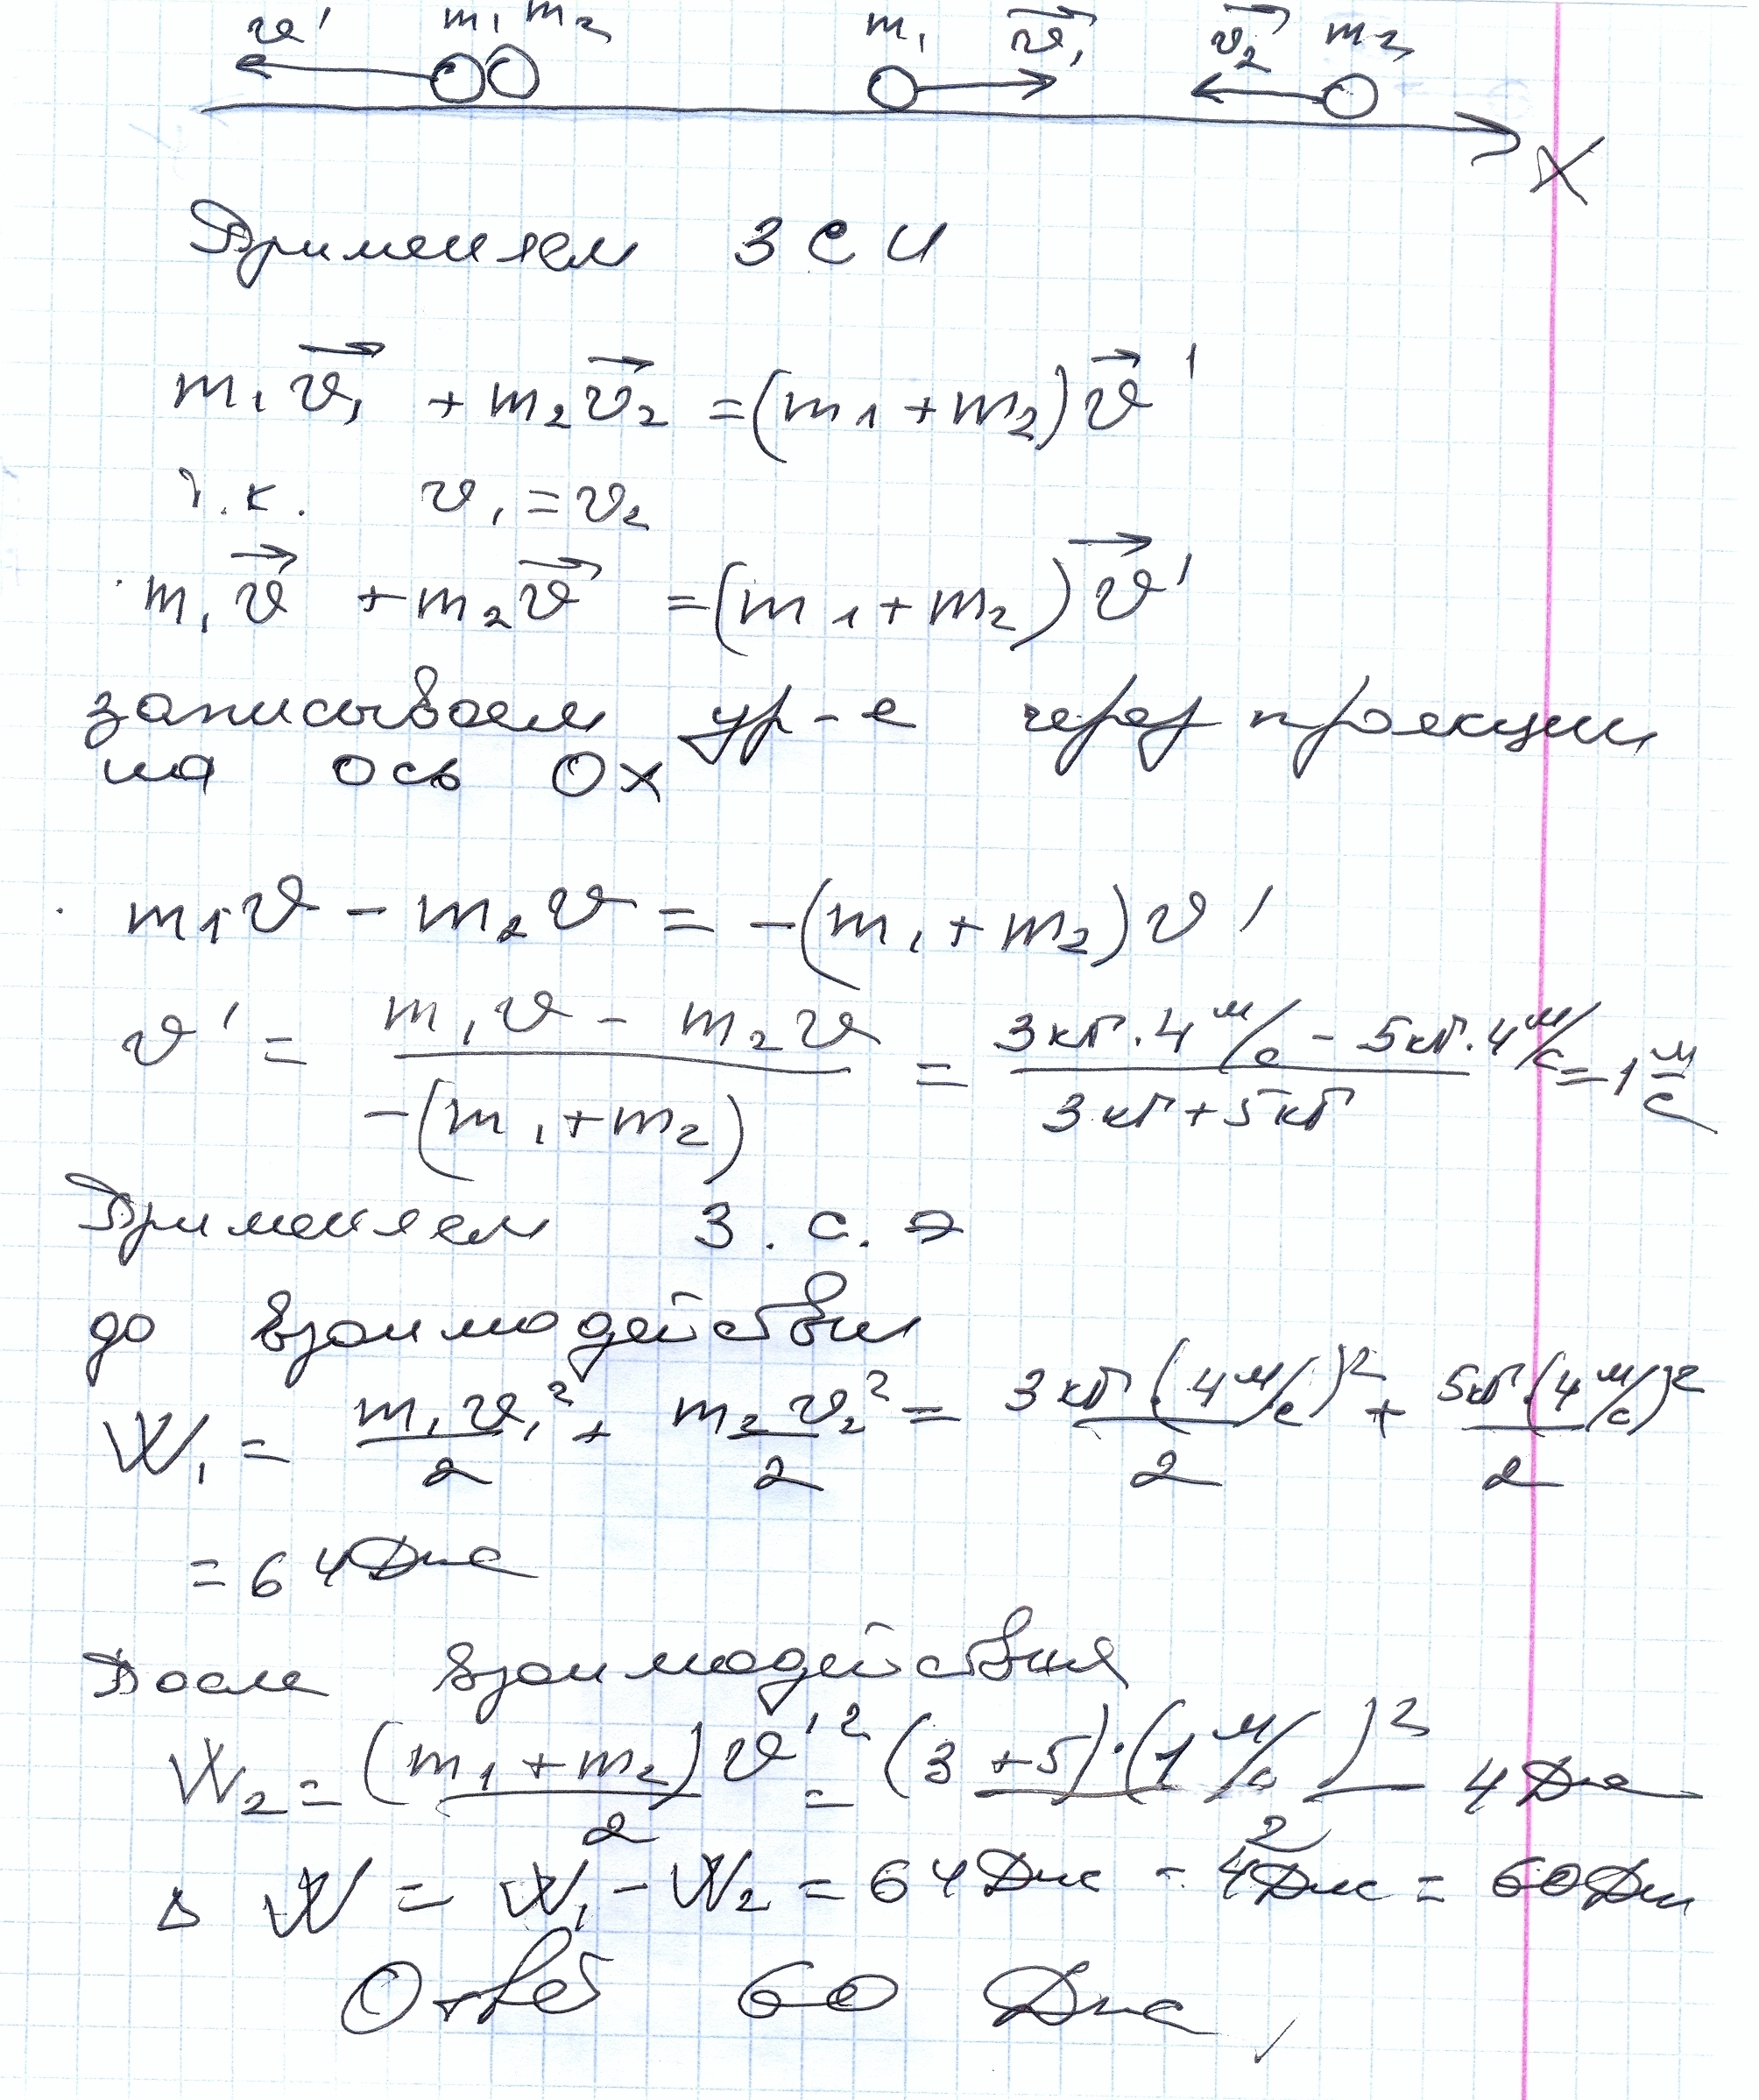 v' m₁ m₂ m₁ v⃗₁ v⃗₂ m₂
X
Применяем ЗСИ
m₁v⃗₁ + m₂v⃗₂ = (m₁ + m₂)v⃗'
т.к. v₁ = v₂
m₁v⃗ + m₂v⃗ = (m₁ + m₂)v⃗'
записываем ур-е через проекции
на ось Ox
m₁v - m₂v = -(m₁ + m₂)v'
v' = (m₁v - m₂v) / (-(m₁ + m₂)) = (3кг · 4 м/с - 5кг · 4 м/с) / (3кг + 5кг) = 1 м/с
Применяем З.С.Э
до взаимодействия
W₁ = m₁v₁²/2 + m₂v₂²/2 = 3кг · (4 м/с)²/2 + 5кг · (4 м/с)²/2
= 64 Дж
После взаимодействия
W₂ = (m₁ + m₂)v'²/2 = (3 + 5) · (1 м/с)²/2 4 Дж
Δ W = W₁ - W₂ = 64 Дж - 4 Дж = 60 Дж
Ответ 60 Дж